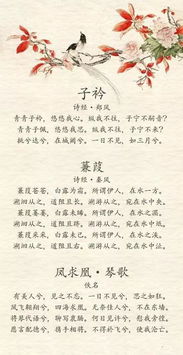 子衿
诗经·郑风
青青子衿，悠悠我心。纵我不往，子宁不嗣音？
青青子佩，悠悠我思。纵我不往，子宁不来？
挑兮达兮，在城阙兮。一日不见，如三月兮。
蒹葭
诗经·秦风
蒹葭苍苍，白露为霜。所谓伊人，在水一方。
溯洄从之，道阻且长。溯游从之，宛在水中央。
蒹葭萋萋，白露未晞。所谓伊人，在水之湄。
溯洄从之，道阻且跻。溯游从之，宛在水中坻。
蒹葭采采，白露未已。所谓伊人，在水之涘。
溯洄从之，道阻且右。溯游从之，宛在水中沚。
凤求凰·琴歌
佚名
有美人兮，见之不忘。一日不见兮，思之如狂。
凤飞翱翔兮，四海求凰。无奈佳人兮，不在东墙。
将琴代语兮，聊写衷肠。何日见许兮，慰我彷徨。
愿言配德兮，携手相将。不得於飞兮，使我沦亡。